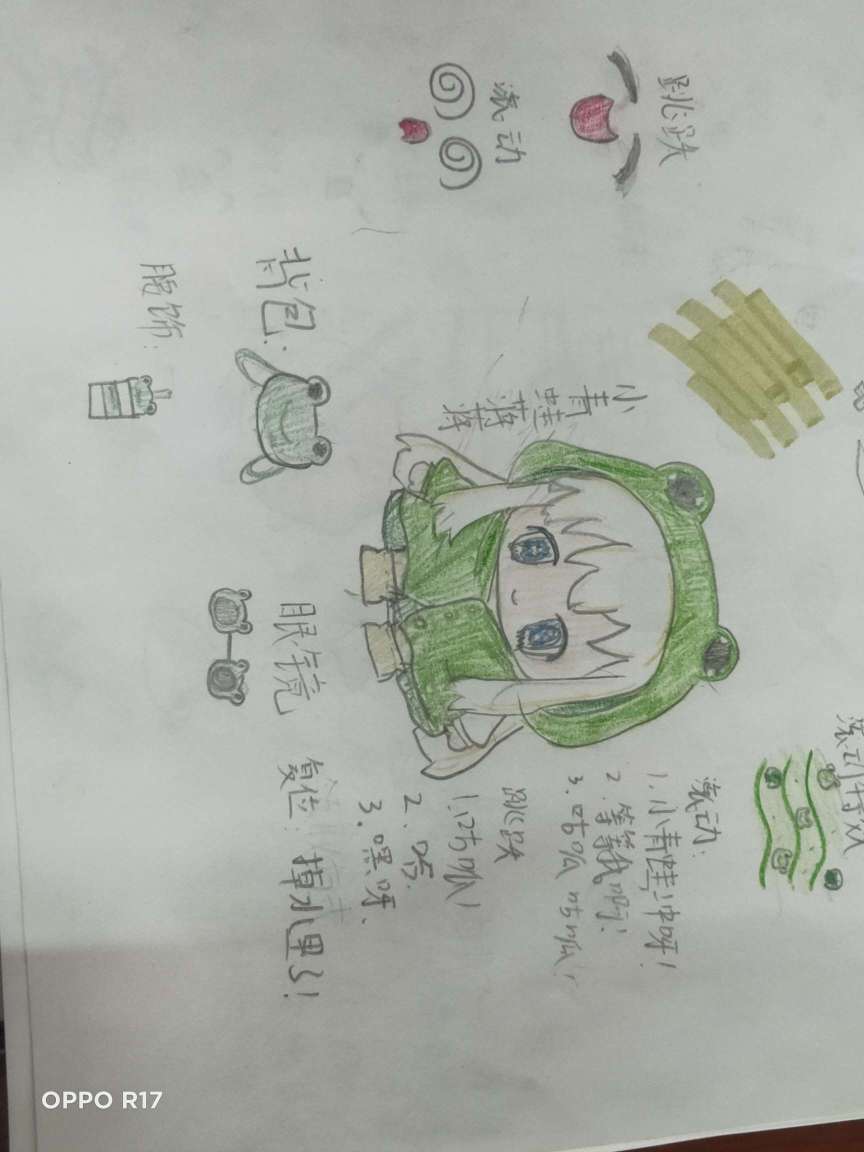 滚动特效
跳跃
滚动
小青蛙
滚动:
1.小青蛙,冲呀!
2.等等我啊!
3.咕呱 咕呱!
跳跃
1.咕呱!
3.嘿呀、
背包:
眼镜
复位:掉水里了!
腰饰:
OPPO R17